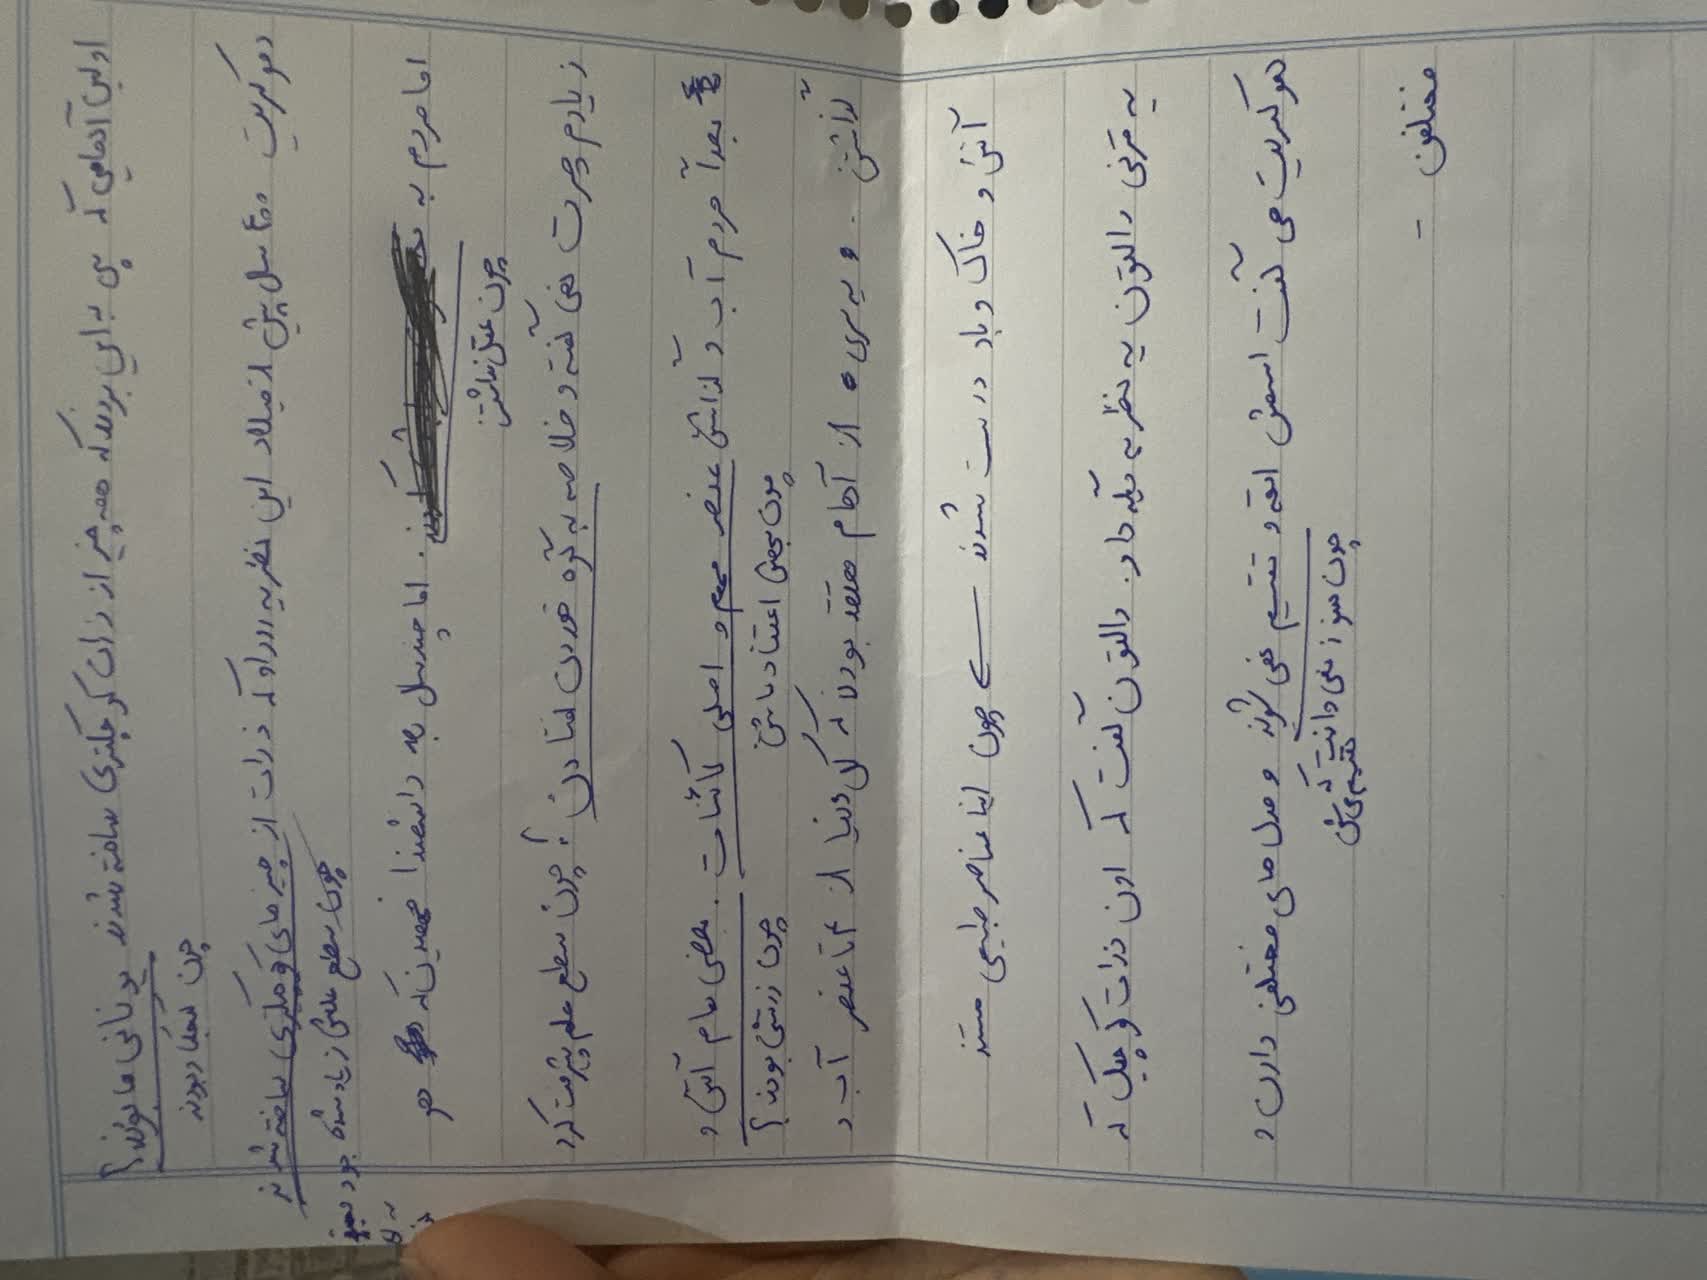 اولین آدمایی که پی به این بردند که همه چیز از ذرات کوچکتری ساخته شدند یونانی ها بودند؟
چون کنجکاو بودند
دموکریت ۴۰۰ سال پیش از میلاد این نظریه رو داد که ذرات از چیزهای کوچکتری ساخته شدند
چون سطح علمش زیاد شده بود
اما مردم به . اما چند سال بعد دانشمندا فهمیدن که دمو
زیادم چرت نمی گفته و خلاصه به گوه خوردن افتادن؟ چون سطع علم پیشرفت کرد
بعداً مردم آب و گذاشتن عنصر مهم و اصلی کائنات . بعضی هام آتش و
چون بهش اعتقاد داشتن
چون زرتشتی بودند؟
گذاشتن . و یه سری از آدمام معتقد بودن که کل دنیا از ۴ تا عنصر آب و
آتش و خاک و باد درست شدند چون اینا عناصر طبیعی هستند
یه قرنی دالتون یه نظریه دیگه داد. دالتون گفت که اون ذرات کوچیک که
دموکریت می گفت اسمش اتمه و تقسیم نمی شوند و مدل های مختلفی دارن و
چون هنوز نمی دانست که تقسیم می شن
مختلفن -